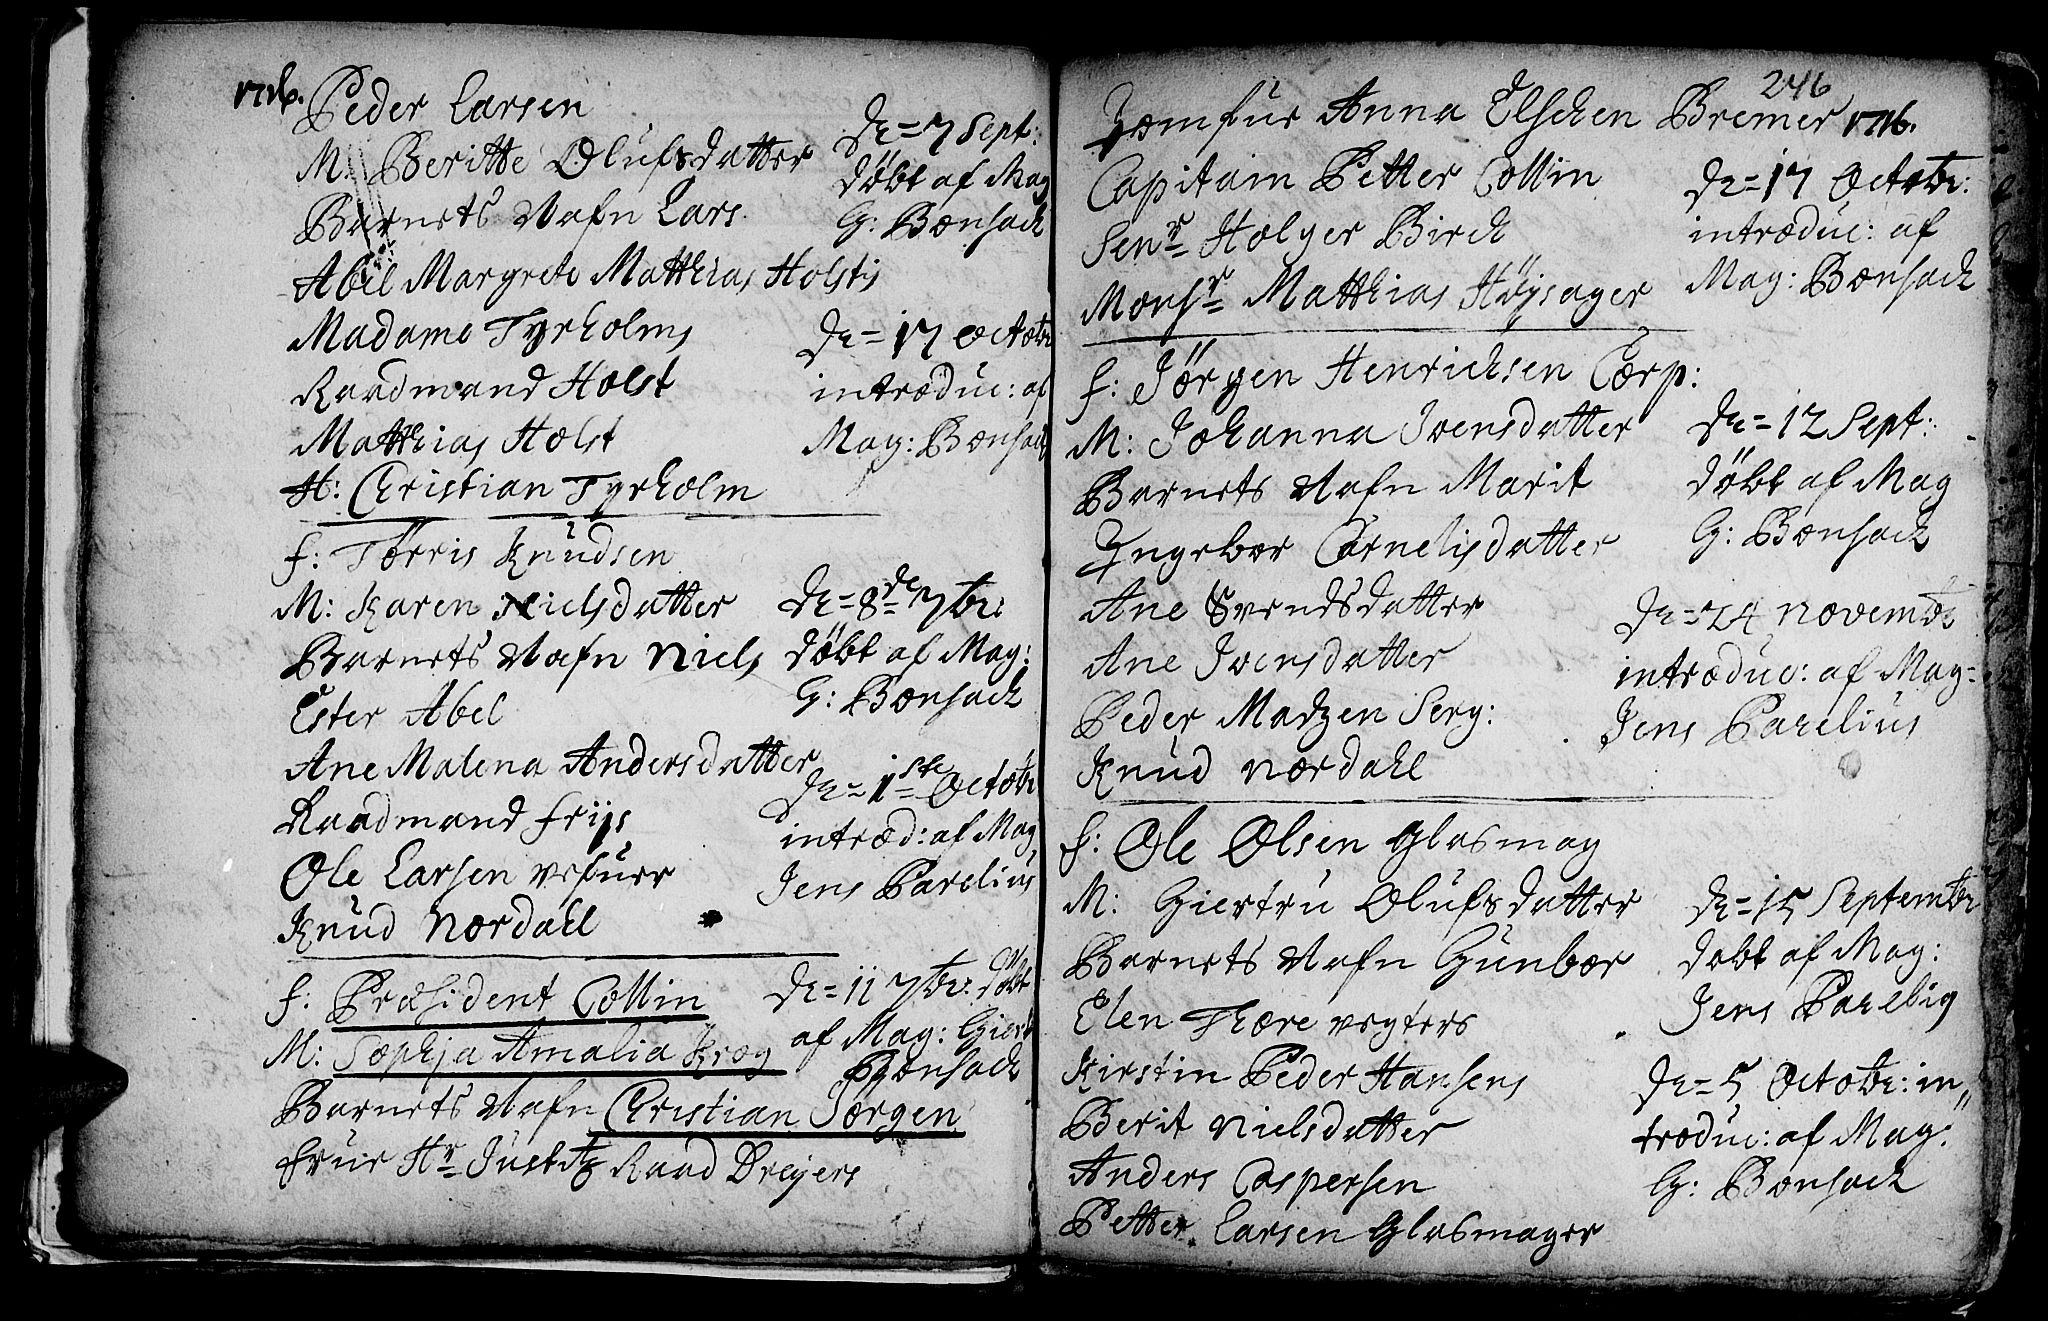 1716.
Peder Larsen
M: Beritte Olufsdatter
Barnets Nafn Lars.
Abel Margrete Matthias Holstis
Madame Tyrholms
Raadmand Holst
Matthias Holst
H: Christian Tyrholm
D= 7 Sept:
døbt af Mag
G: Bonsach
D= 17 Octobr
introduc: af
Mag: Bonsach
f: Torris Knudsen
M: Karen Nielsdatter
Barnets Nafn Niels
Ester Abel
Ane Malena Andersdatter
Raadmand Friis
Ole Larsen
Knud Nordahl
D= 8de 7br:
døbt af Mag:
G: Bonsach
D= 1ste Octobr
introd: af Mag
Jens Parelius
f: Præsident Collin
M: Sophja Amalia Krog
Barnets Nafn Christian Jørgen
Frue Hr Justitz Raad Dreyers
D= 11 7br: døbt
af Mag: Giert
Bonsach
246
Jomfur Anna Elschen Bremer 1716.
Capitain Petter Collin
Senr Holger Birch
Monsr Matthias Høysager
D= 17 Octobr:
introduc: af
Mag: Bonsach
f: Jørgen Henrichsen Corp:
M: Johanna Ivensdatter
Barnets Nafn Marit
Yngebor Cornelisdatter
Ane Svendsdatter
Ane Ivensdatter
Peder Madzen Serg:
Knud Nordahl
D= 12 Sept:
døbt af Mag
G: Bonsach
D= 24 Novembr
introduc: af Mag=
Jens Parelius
f: Ole Olsen Glasmag
M: Giertru Olufsdatter
Barnets Nafn Gunbor
Elen Thore vegters
Kirstin Peder Hansens
Berit Nielsdatter
Anders Caspersen
Petter Larsen Glasmager
D= 15 Septembr
dobt af Mag:
Jens Parelius
D= 5 Octobr: in„
troduc: af Mag:
G: Bonsach